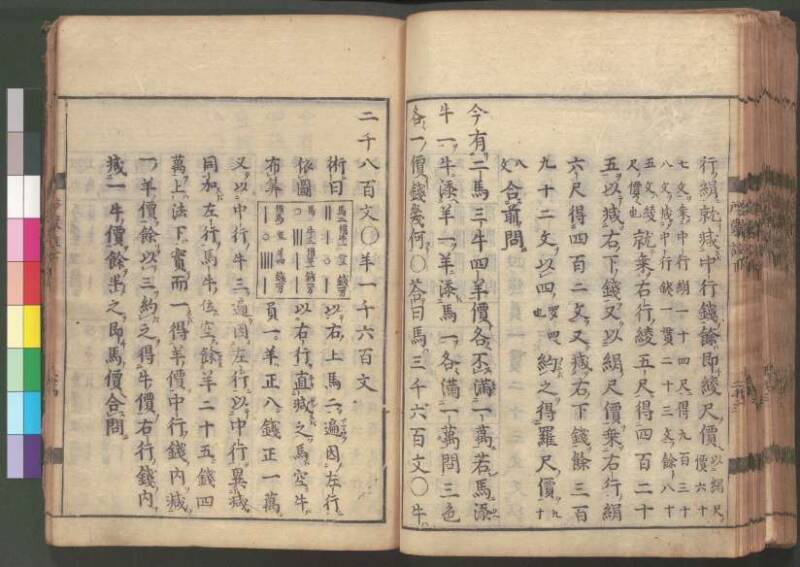 行絹就減中行錢餘即綾尺價以絹尺價六十
七文乘中行絹一十四尺得九百三十
八文減中行錢一貫二十三文餘八十
五文綾尺價也就乘右行綾五尺得四百二十
五以減右下錢又以絹尺價乘右行絹
六尺得四百二文又減右下錢餘三百
九十二文以四羅四也約之得羅尺價九十
八文合前問
今有二馬三牛四羊價各不滿一萬若馬添
牛一牛添羊一羊添馬一各滿一萬問三色
各一價錢幾何〇答曰馬三千六百文〇牛
二千八百文〇羊一千六百文
術曰以右上馬二遍因左行
依圖以右行直減之馬空牛
布算負一羊正八錢正一萬
又以中行牛三遍因左行以中行異減
同加左行馬牛位空餘羊二十五錢四
萬上法下實而一得羊價中行錢內減
一羊價餘以三約之得牛價右行錢內
減一牛價餘半之即馬價合問